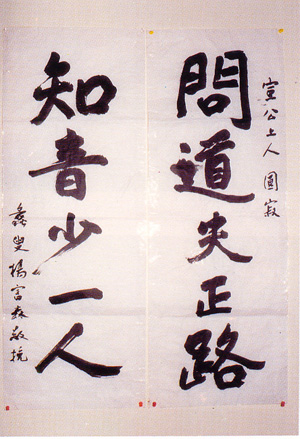 宣公上人 圓寂
問道失正路
知音少一人
叟 楊富森敬挽